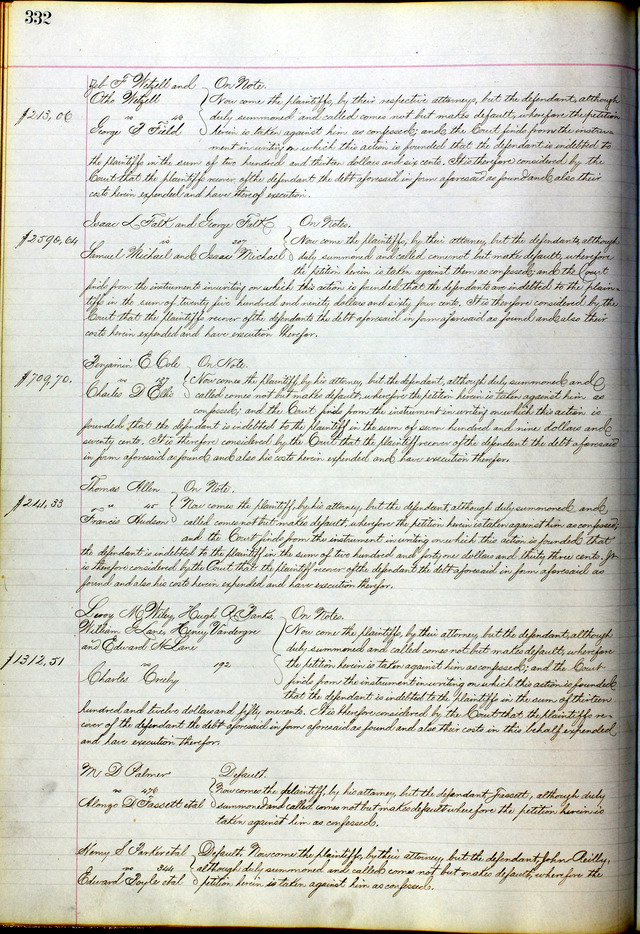 332
Jeb F Wetzell and On Note.
Otho Wetzell Now come the plaintiffs, by their respective attorneys, but the defendant, although
$213,06 vs 46 duly summoned and called comes not but makes default, wherefore the petition
George B Field herein is taken against him as confessed; and the Court finds from the instru-
ment in writing on which this action is founded that the defendant is indebted to
the plaintiffs in the sum of two hundred and thirteen dollars and six cents. It is therefore considered by the
Court that the plaintiffs recover of the defendant the debt aforesaid in form aforesaid as found and also their
costs herein expended and have thereof execution.
Isaac L Falk and George Falk On Notes.
$2590,64 vs 207 Now come the plaintiffs, by their attorney, but the defendants, although
Samuel Michael and Isaac Michael duly summoned and called come not but make default, wherefore
the petition herein is taken against them as confessed, and the Court
finds from the instruments in writing on which this action is founded, that the defendants are indebted to the plain-
tiffs in the sum of twenty five hundred and ninety dollars and sixty four cents. It is therefore considered by the
Court that the plaintiffs recover of the defendants the debt aforesaid in form aforesaid as found and also their
costs herein expended and have execution therefor.
Benjamin E Cole On Note.
$709,70. vs Now comes the plaintiff, by his attorney, but the defendant, although duly summoned and
Charles D Ellis called comes not but makes default, wherefore the petition herein is taken against him as
confessed; and the Court finds from the instrument in writing on which this action is
founded that the defendant is indebted to the plaintiff in the sum of seven hundred and nine dollars and
seventy cents. It is therefore considered by the Court that the plaintiff recover of the defendant the debt aforesaid
in form aforesaid as found and also his costs herein expended and have execution therefor.
Thomas Allen On Note.
$241,33 vs 45 Now comes the plaintiff, by his attorney, but the defendant, although duly summoned and
Francis Hudson called comes not but makes default, wherefore the petition herein is taken against him as confessed,
and the Court finds from the instrument in writing on which this action is founded that
the defendant is indebted to the plaintiff in the sum of two hundred and forty one dollars and thirty three cents. It
is therefore considered by the Court that the plaintiff recover of the defendant the debt aforesaid in form aforesaid as
found and also his costs herein expended and have execution therefor.
Leroy M Wiley, Hugh R Banks, On Notes.
William G Lane, Henry Vandergee Now come the plaintiffs, by their attorney but the defendant, although
and Edward H Lane duly summoned and called comes not but makes default, wherefore
$1312,51 vs 192 the petition herein is taken against him as confessed; and the Court
Charles Crosby finds from the instrument in writing on which this action is founded
that the defendant is indebted to the plaintiffs in the sum of thirteen
hundred and twelve dollars and fifty one cents. It is therefore considered by the Court that the plaintiffs re-
cover of the defendant the debt aforesaid in form aforesaid as found and also their costs in this behalf expended
and have execution therefor.
M D Palmer Default.
vs 476 Now comes the plaintiff, by his attorney, but the defendant Fassett, although duly
Alonzo D Fassett et al summoned and called comes not but makes default wherefore the petition herein is
taken against him as confessed.
Henry S Parker et al Default. Now come the plaintiffs, by their attorney, but the defendant John Reilly,
vs 344 although duly summoned and called comes not but makes default, wherefore the
Edward Doyle et al petition herein is taken against him as confessed.